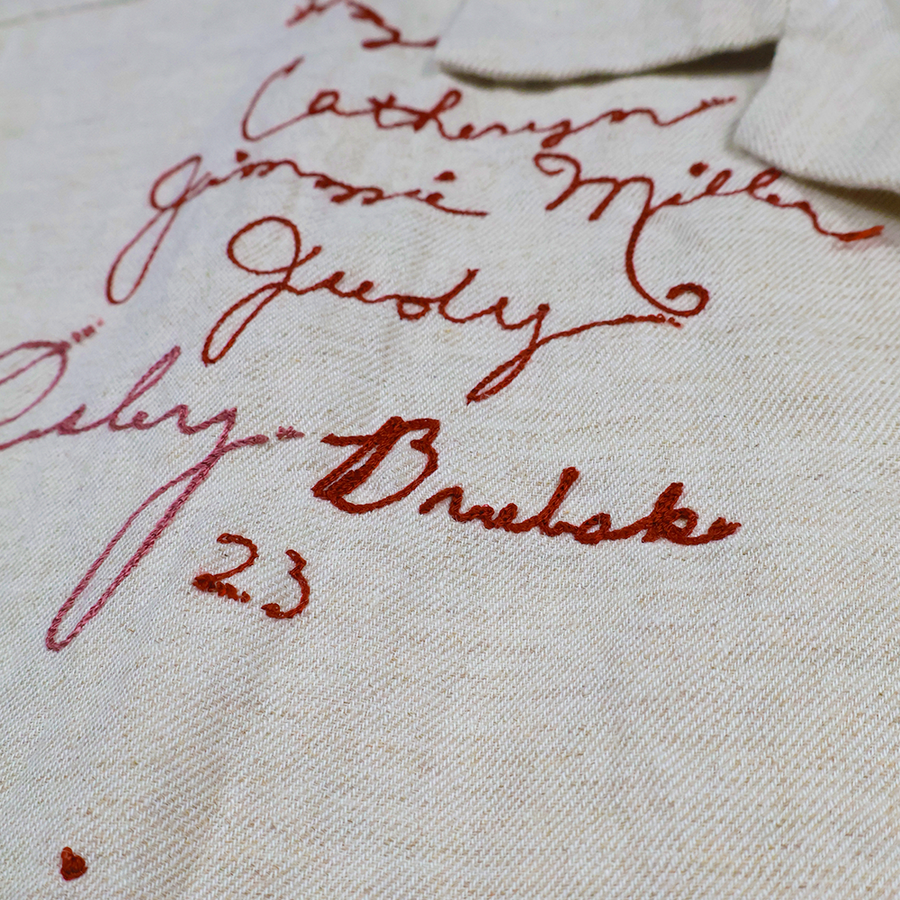 Catheryn
Jimmie Miller
Judy
Brubak
23